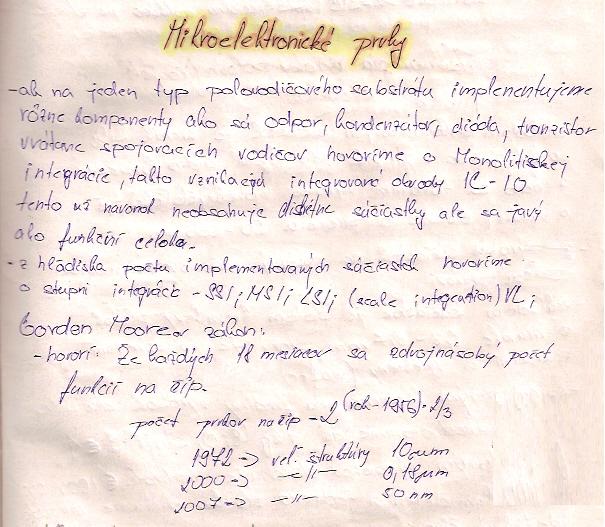 Mikroelektronické prvky
-ak na jeden typ polovodičového substrátu implementujeme
rôzne komponenty ako sú odpor, kondenzátor, dióda, tranzistor
vrátane spojovacích vodičov hovoríme o Monolitickej
integrácie, takto vznikajú integrované obvody IC-IO
tento už navonok neobsahuje diskrétne súčiastky ale sa javý
ako funkční celok.
-z hľadiska počtu implementovaných súčiastok hovoríme
o stupni integrácie - SSI; MSI; LSI; (scale integration) VL;
Gorden Mooreov zákon:
-hovorí: Že každých 18 mesiacov sa zdvojnásobý počet
funkcií na čip.
počet prvkov na čip - 2^(rok-1956)·2/3
1972 -> veľ. štruktúry 10μm
2000 -> -//- 0,18μm
2007 -> -//- 50nm